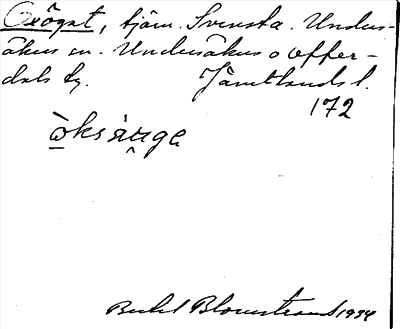 Oxögat, tjärn. Svensta. Unders-
åkers sn. Undersåkers o Offer-
dals tg. Jämtlands l.
172
Bertil Blomstrand 1934